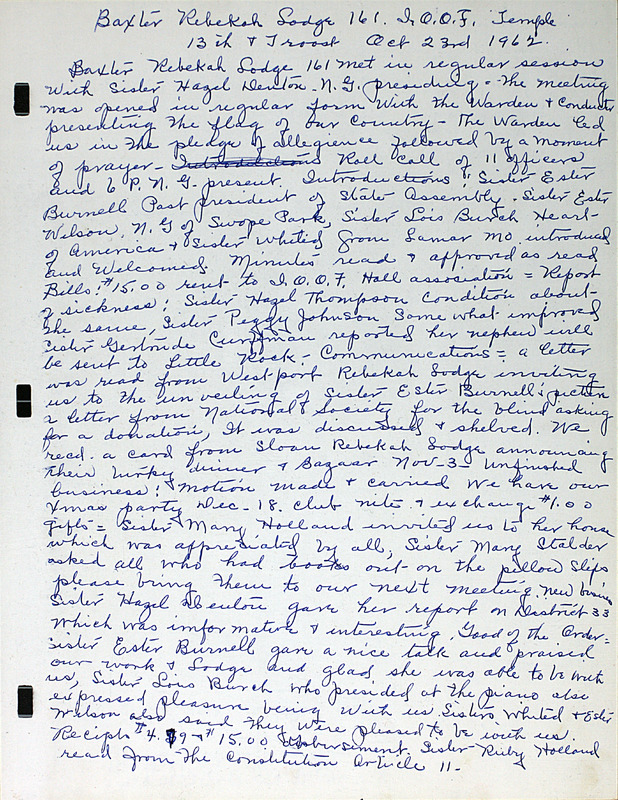 Baxter Rebekah Lodge 161. I.O.O.F. Temple
13th & Troost Oct 23rd 1962.
Baxter Rebekah Lodge 161 met in regular session
With Sister Hazel Denton - N.G. presiding. The meeting
was opened in regular form With the Warden & Conducter
presenting the flag of our Country - the Warden led
us in the pledge of allegience followed by a moment
of prayer - Introductions Roll Call of 11 officers
and 6 P.N.G. present. Introductions: Sister Ester
Burnell Past President of State Assembly. Sister Ester
Wilson, N.G of Swope Park, Sister Lois Burch Heart-
of America & Sister Whited from Lamar Mo. introduced
and Welcomed. Minutes read & approved as read
Bills: $15.00 rent to I.O.O.F. Hall association = Report
of sickness: Sister Hazel Thompson Condition about-
the same, Sister Peggy Johnson Some what improved
Sister Gertrude reported her nephew will
be sent to Little Rock - Communications = a letter
was read from Westport Rebekah Lodge inviting
us to the unveiling of Sister Ester Burnell's picture
a letter from National Society for the blind asking
for a donation, It was discussed & shelved. We
read a card from Sloan Rebekah Lodge announcing
their turkey dinner & Bazaar Nov-3- Unfinished
business: Motion made & carried We have our
Xmas party Dec-18. club nite & exchange $1.00
Gifts = Sister Mary Holland invited us to her house
which was appresiated by all, Sister Mary Stalder
asked all who had books out on the pillow slips
please bring them to our next meeting. New business
Sister Hazel Denton gave her report on District 33
Which was informative & interesting. Good of the Order =
Sister Ester Burnell gave a nice talk and praised
our work & Lodge and glad she was able to be with
us, Sister Lois Burch who presided at the piano also
expressed pleasure being With us Sisters Whited & Ester
Wilson also said they were pleased to be with us.
Recipts $4.99 & $15.00 disbursiment. Sister Ruby Holland
read from the Constitution Article 11-